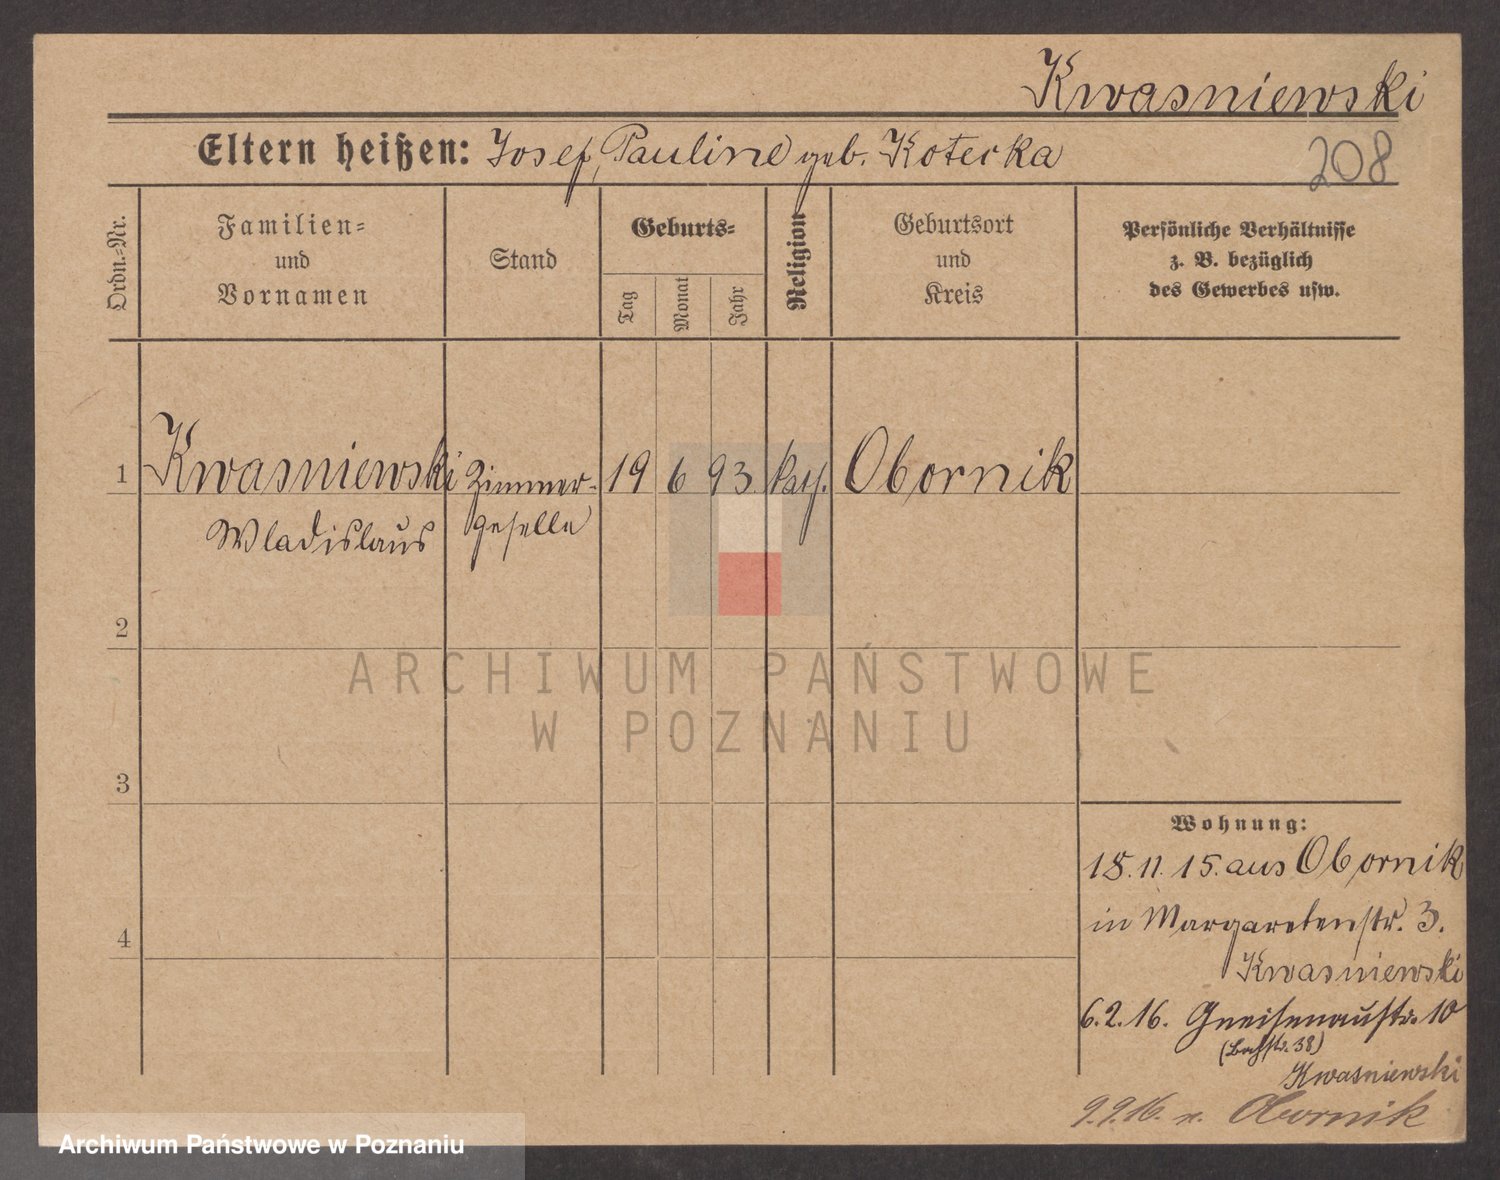 Kwasniewski
Eltern heißen: Josef, Pauline geb. Kotecka
208
Ordn.-Nr.
Familien-
und
Vornamen
Stand
Geburts-
Tag
Monat
Jahr
Religion
Geburtsort
und
Kreis
Persönliche Verhältnisse
z. B. bezüglich
des Gewerbes usw.
1 Kwasniewski Zimmer- 19 6 93. kath. Obornik
Wladislaus geselle
2
ARCHIWUM PAŃSTWOWE
W POZNANIU
3
Wohnung:
18.11.15. aus Obornik
in Margaretenstr. 3.
4
Kwasniewski
6.2.16. Gneisenaustr. 10
38)
Kwasniewski
9.9.16. n. Obornik
Archiwum Państwowe w Poznaniu